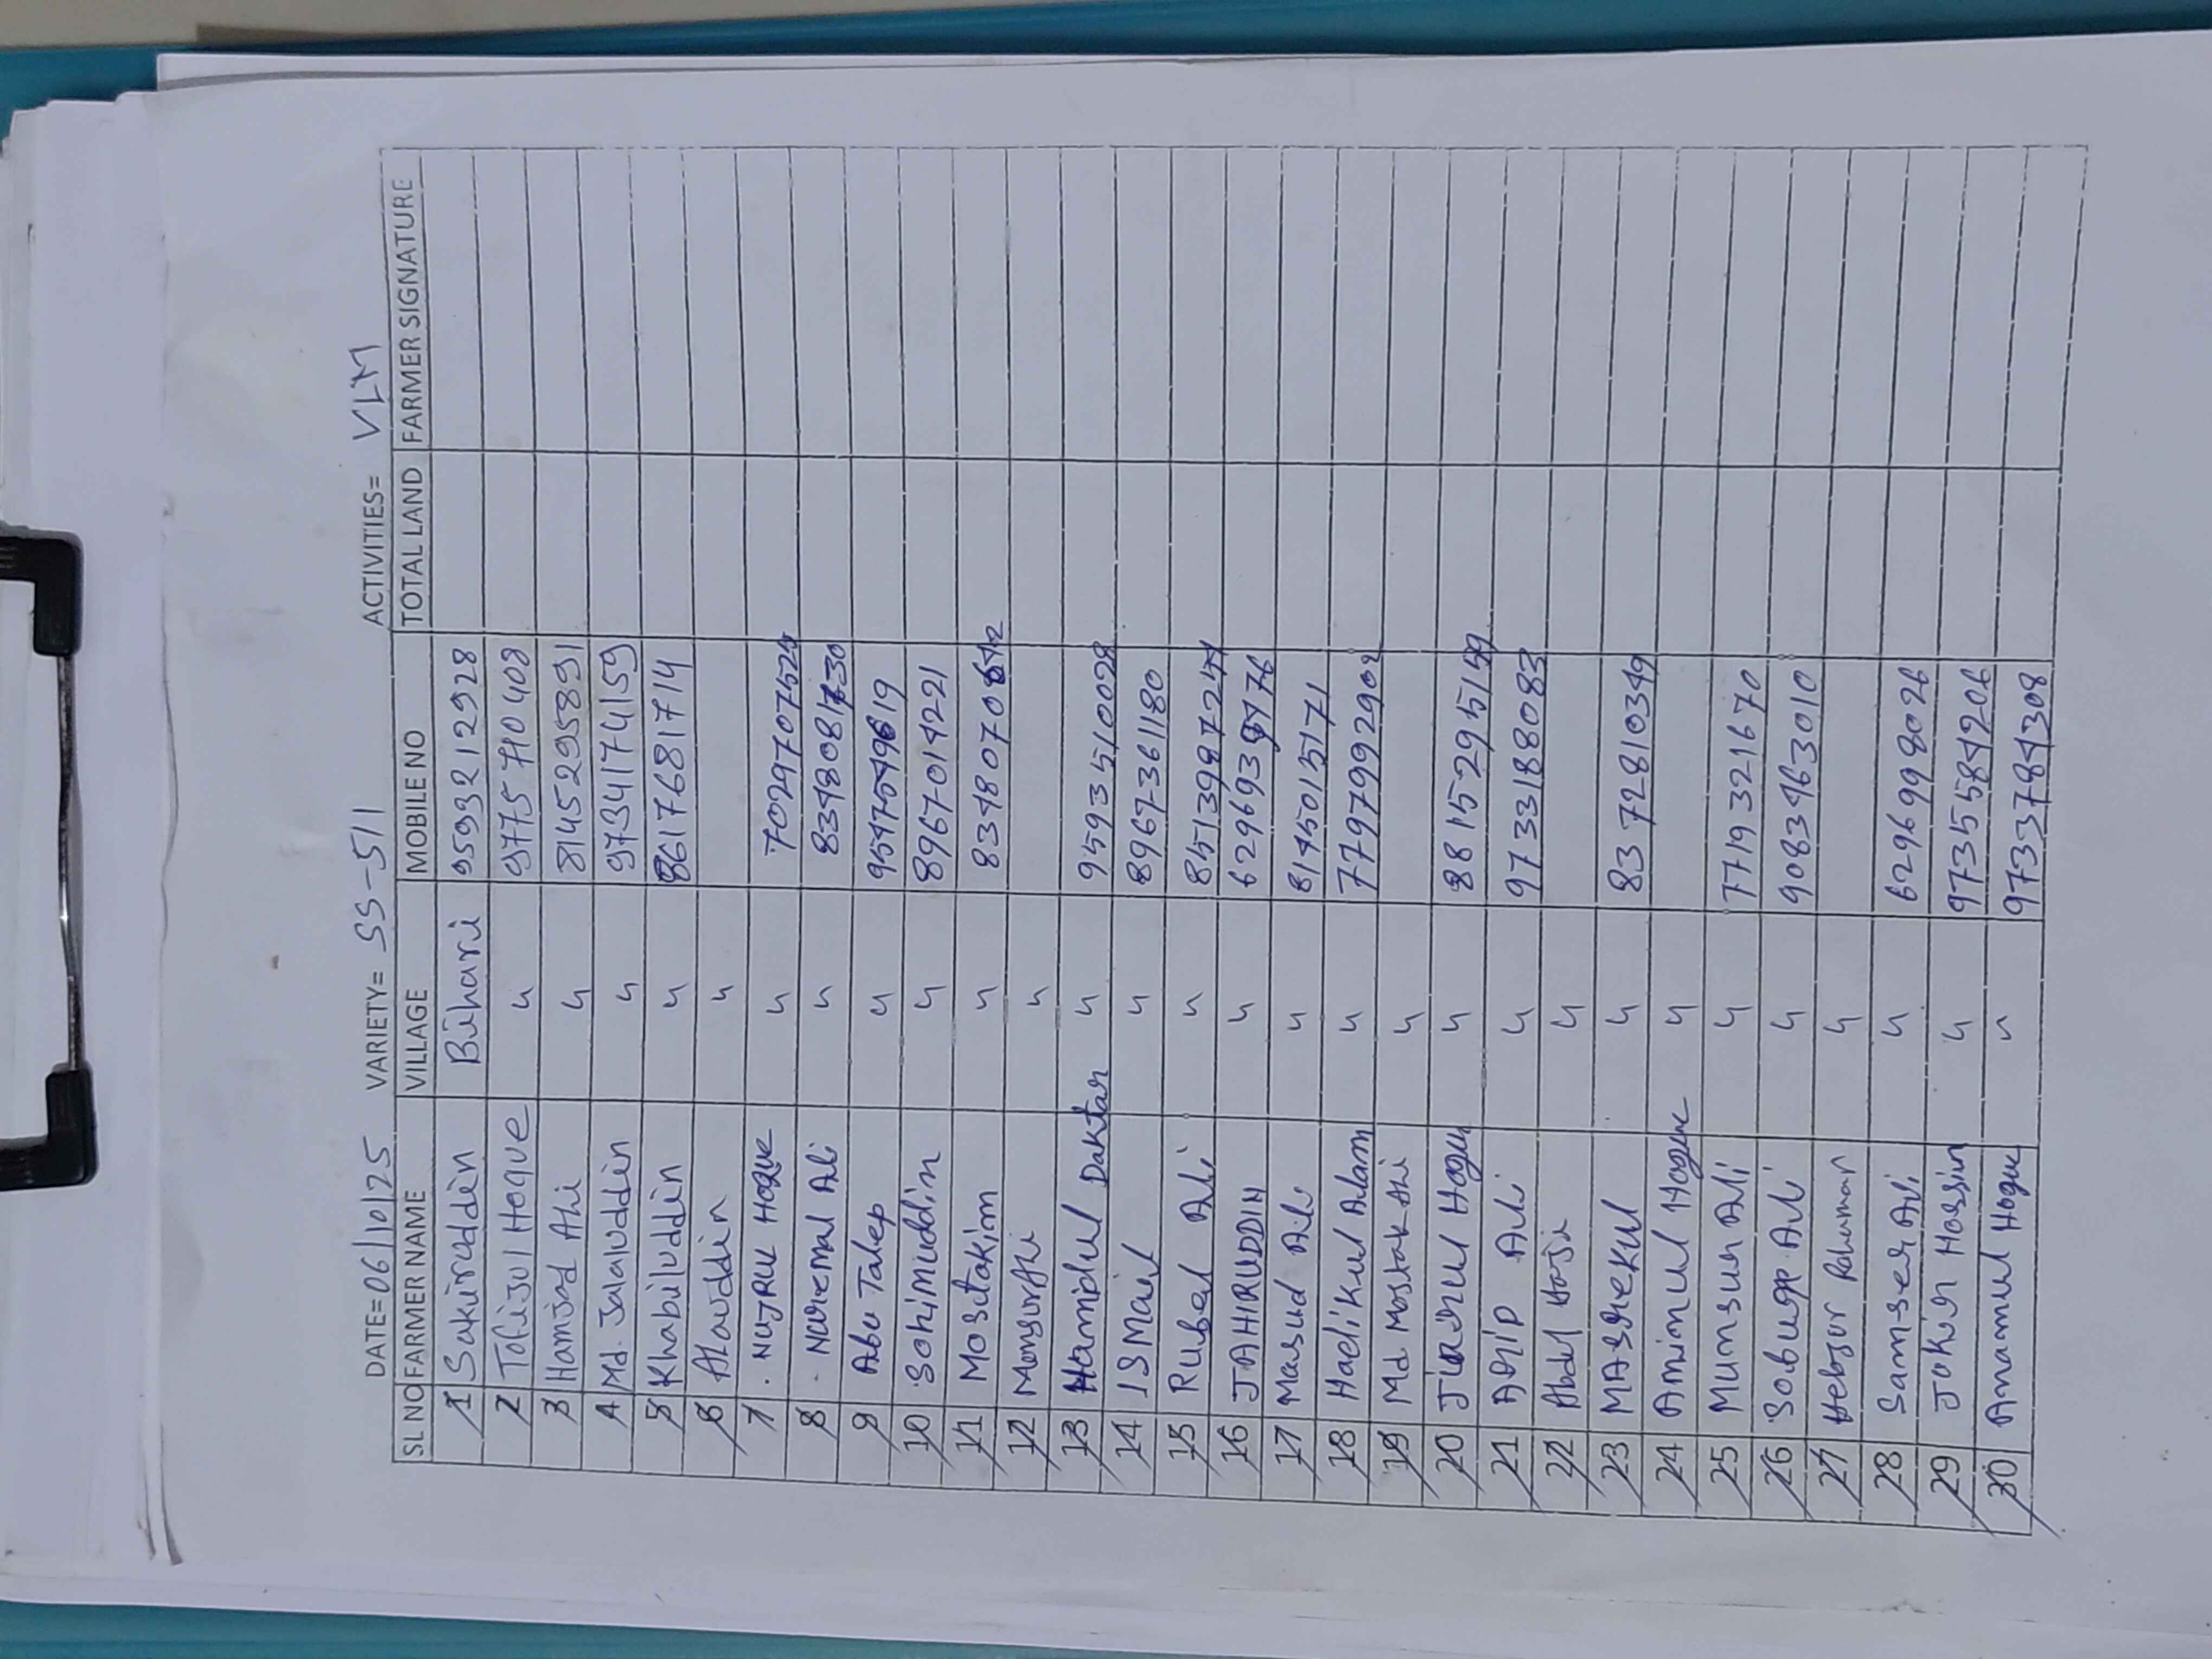 DATE=06/10/25 VARIETY= SS-511 ACTIVITIES= VLM
SL NO FARMER NAME VILLAGE MOBILE NO TOTAL LAND FARMER SIGNATURE
1 Sakiruddin Bihari 9593212928
2 Tofijul Hoque 〃 9775710408
3 Hamjad Ali 〃 8145295891
4 Md. Jalaluddin 〃 9734174159
5 Khabiluddin 〃 8617681714
6 Alauddin 〃
7 . Nujrul Hoque 〃 7029707529
8 . Nuremal Ali 〃 8348081730
9 Abu Talep 〃 9547549619
10 Sohimuddin 〃 8967014221
11 Mostakim 〃
12 Monsur Ali 〃
13 Hamidul Daktar 〃 9593510028
14 ISMail 〃 8967361180
15 Rubel Ali 〃
16 JAHIRUDDIN 〃
17 Masud Ali 〃 8145015171
18 Hadikul Alam 〃 7797992902
19 Md Mostak Ali 〃
20 Hoque 〃
21 Ali 〃 9733188083
22 Abdul Haji 〃
23 〃 8372810349
24 Aminul Hoque 〃
25 Munsur Ali 〃 7719321670
26 Ali 〃 9083463010
27 Rahuman 〃
28 Samser Ali 〃 6296998026
29 Hossin 〃 9735584206
30 Anamul Hoque 〃 9733784308